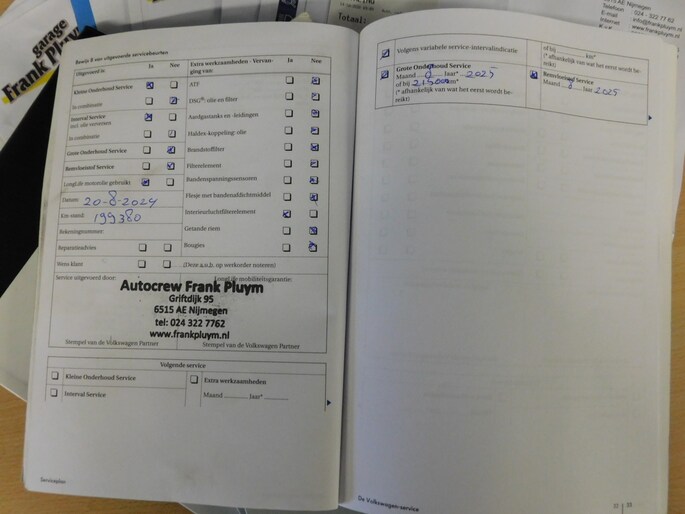 garage
Frank Pluym
Totaal:
6515 AE Nijmegen
Telefoon 024 - 322 77 62
E-mail info@frankpluym.nl
Internet www.frankpluym.nl
Bewijs 8 van uitgevoerde servicebeurten
Uitgevoerd is Ja Nee
Kleine Onderhoud Service
In combinatie
Interval Service
incl. olie verversen
In combinatie
Grote Onderhoud Service
Remvloeistof Service
LongLife motorolie gebruikt
Datum: 20-8-2024
Km-stand: 199380
Rekeningnummer:
Reparatieadvies
Wens klant
Extra werkzaamheden - Vervan-
ging van: Ja Nee
ATF
DSG®: olie en filter
Aardgastanks en -leidingen
Haldex-koppeling: olie
Brandstoffilter
Filterelement
Bandenspanningssensoren
Flesje met bandenafdichtmiddel
Interieurluchtfilterelement
Getande riem
Bougies
(Deze a.u.b. op werkorder noteren)
Service uitgevoerd door: LongLife mobiliteitsgarantie:
Autocrew Frank Pluym
Griftdijk 95
6515 AE Nijmegen
tel: 024 322 7762
www.frankpluym.nl
Stempel van de Volkswagen Partner Stempel van de Volkswagen Partner
Volgende service
Kleine Onderhoud Service
Interval Service
Extra werkzaamheden
Maand Jaar*
Serviceplan
Volgens variabele service-intervalindicatie
of bij km*
(* afhankelijk van wat het eerst wordt be-
reikt)
Grote Onderhoud Service
Maand 8 Jaar* 2025
of bij 215000 km*
(* afhankelijk van wat het eerst wordt be-
reikt)
Remvloeistof Service
Maand 8 Jaar 2025
De Volkswagen-service